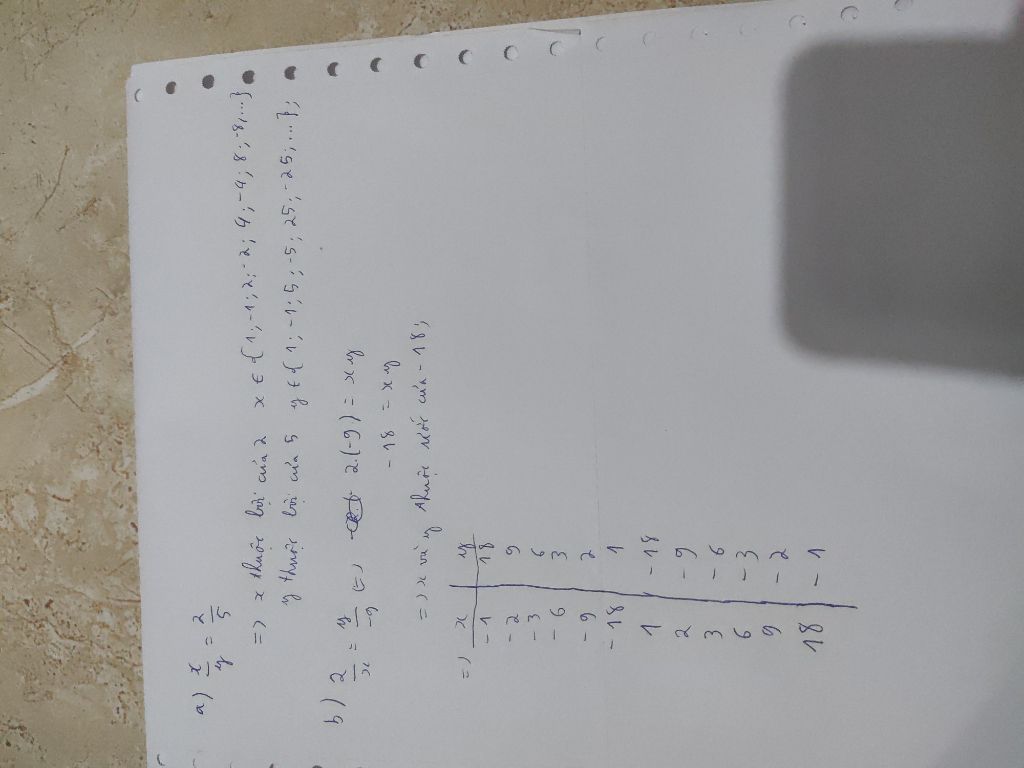 a) x/y = 2/5
=> x thuộc bội của 2 x ∈ {1; -1; 2; -2; 4; -4; 8; -8, ...}
y thuộc bội của 5 y ∈ {1; -1; 5; -5; 25; -25; ...};
b) 2/x = y/-9 (=) 2.(-9) = xy
-18 = xy
=> x và y thuộc ước của -18;
=> x | y
-1 | 18
-2 | 9
-3 | 6
-6 | 3
-9 | 2
-18 | 1
1 | -18
2 | -9
3 | -6
6 | -3
9 | -2
18 | -1